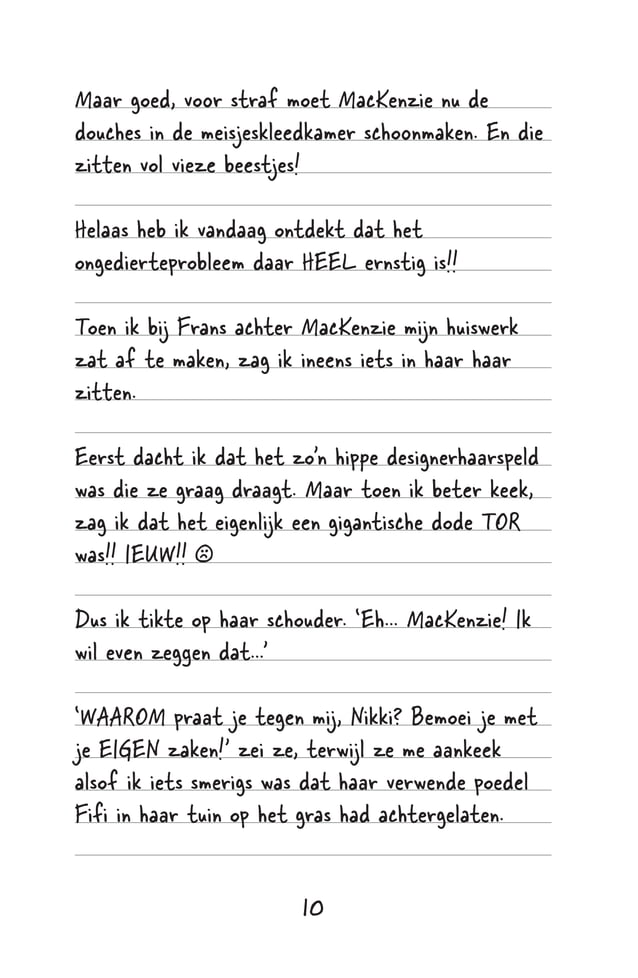 Maar goed, voor straf moet MacKenzie nu de
douches in de meisjeskleedkamer schoonmaken. En die
zitten vol vieze beestjes!
Helaas heb ik vandaag ontdekt dat het
ongedierteprobleem daar HEEL ernstig is!!
Toen ik bij Frans achter MacKenzie mijn huiswerk
zat af te maken, zag ik ineens iets in haar haar
zitten.
Eerst dacht ik dat het zo’n hippe designerhaarspeld
was die ze graag draagt. Maar toen ik beter keek,
zag ik dat het eigenlijk een gigantische dode TOR
was!! IEUW!! ☹
Dus ik tikte op haar schouder. ‘Eh... MacKenzie! Ik
wil even zeggen dat...’
‘WAAROM praat je tegen mij, Nikki? Bemoei je met
je EIGEN zaken!’ zei ze, terwijl ze me aankeek
alsof ik iets smerigs was dat haar verwende poedel
Fifi in haar tuin op het gras had achtergelaten.
10